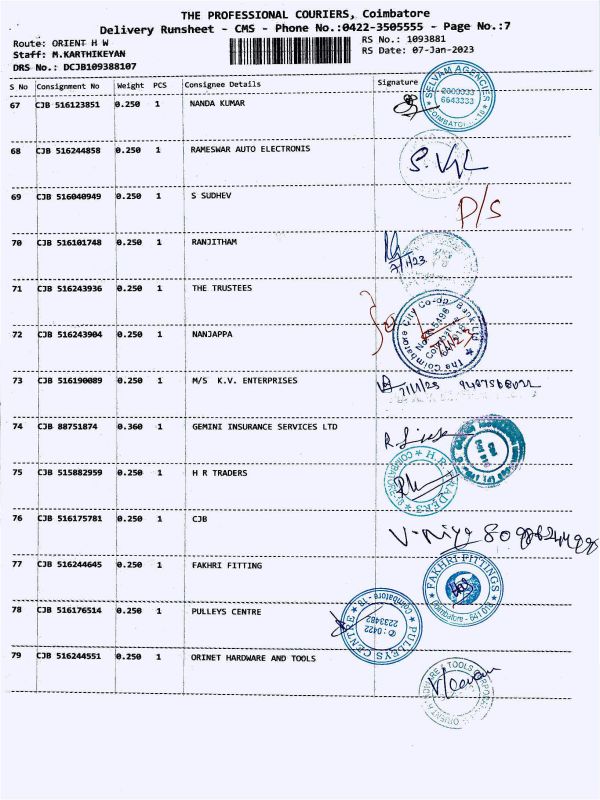 THE PROFESSIONAL COURIERS, Coimbatore
Delivery Runsheet - CMS - Phone No.:0422-3505555 - Page No.:7
Route: ORIENT H W
Staff: M.KARTHIKEYAN
DRS No.: DCJB109388107
RS No.: 1093881
RS Date: 07-Jan-2023
S No Consignment No Weight PCS Consignee Details Signature
67 CJB 516123851 0.250 1 NANDA KUMAR
SELVAM AGENCIES
6643333
68 CJB 516244858 0.250 1 RAMESWAR AUTO ELECTRONIS
69 CJB 516040949 0.250 1 S SUDHEV P/S
70 CJB 516101748 0.250 1 RANJITHAM
7/1/23
71 CJB 516243936 0.250 1 THE TRUSTEES
The Coimbatore City Co-op Bank Ltd
72 CJB 516243904 0.250 1 NANJAPPA
73 CJB 516190089 0.250 1 M/S K.V. ENTERPRISES
74 CJB 88751874 0.360 1 GEMINI INSURANCE SERVICES LTD
75 CJB 515882959 0.250 1 H R TRADERS
H.R. TRADERS
76 CJB 516175781 0.250 1 CJB
77 CJB 516244645 0.250 1 FAKHRI FITTING
FAKHRI FITTINGS
Coimbatore - 641 018
78 CJB 516176514 0.250 1 PULLEYS CENTRE
PULLEYS CENTRE
Coimbatore - 18
0422
2233482
79 CJB 516244551 0.250 1 ORINET HARDWARE AND TOOLS